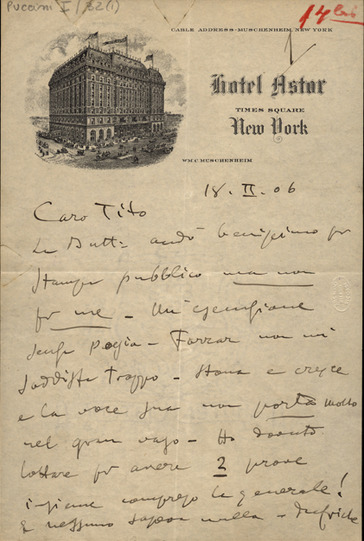 Puccini I/32(1)
14 feb
CABLE ADDRESS-MUSCHENHEIM, NEW YORK
Hotel Astor
TIMES SQUARE
New York
WM.C.MUSCHENHEIM
18. II. 06
Caro Tito
La Butt: andò benissimo per
stampa pubblico ma non
per me - Un'esecuzione
senza poesia - Farrar non mi
soddisfa troppo - stona e cresce
e la voce sua non porta molto
nel gran vaso - Ho dovuto
lottare per avere 2 prove
insieme compreso la generale!
E nessuno sapeva nulla -